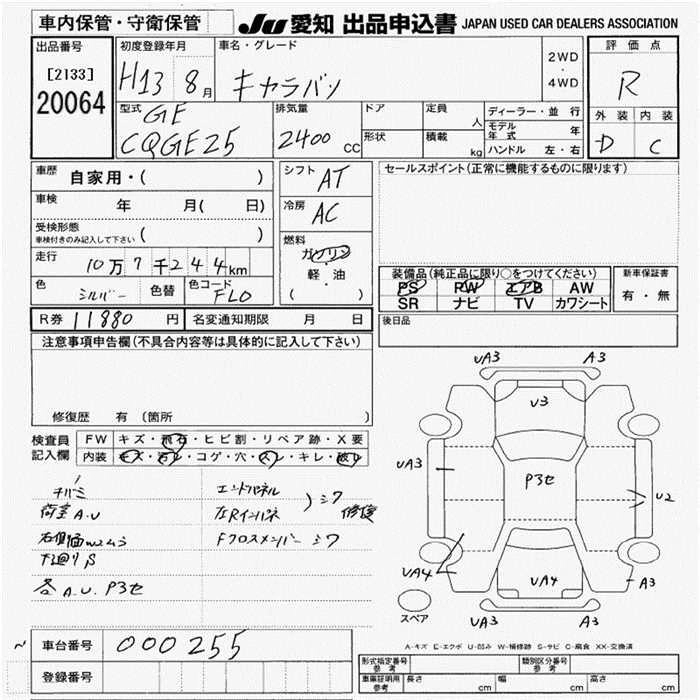 車内保管・守衛保管
JU 愛知 出品申込書 JAPAN USED CAR DEALERS ASSOCIATION
出品番号
[2133]
20064
初度登録年月
H13 8月
車名・グレード
キャラバン
2WD
・
4WD
評価点
R
外装 内装
D C
型式 GE
CQGE25
排気量
2400 CC
ドア
形状
定員 人
積載 kg
ディーラー・並行
モデル年式 年
ハンドル 左・右
車歴 自家用・( )
車検 年 月( 日)
受検形態
車検付きのみ記入して下さい ( )
走行 10万7千244km
色 シルバー 色替 色コード FL0
シフト AT
冷房 AC
燃料
ガソリン
軽・油
( )
セールスポイント(正常に機能するものに限ります)
装備品(純正品に限り○をつけてください)
PS PW エアB AW
SR ナビ TV カワシート
新車保証書
有・無
R券 11880 円 名変通知期限 月 日
後日品
注意事項申告欄(不具合内容等は具体的に記入して下さい)
修復歴 有 (箇所 )
検査員記入欄
FW キズ・飛石・ヒビ割・リペア跡・X要
内装 キズ・汚レ・コゲ・穴・スレ・キレ・破レ
荷室 A.U
下廻り S
各 A.U. P3セ
エンドパネル
左Rインパネ
シワ 修復
Fクロスメンバー シワ
UA3 A3
U3
UA3
P3セ
U2
UA4
UA4
A3
UA3 A3
スペア
A-キズ E-エクボ U-凹み W-補修跡 S-サビ C-腐食 XX-交換済
車台番号 000255
登録番号
形式指定番号 参考
類別区分番号 参考
車庫証明用 参考 長さ cm 幅 cm 高さ cm